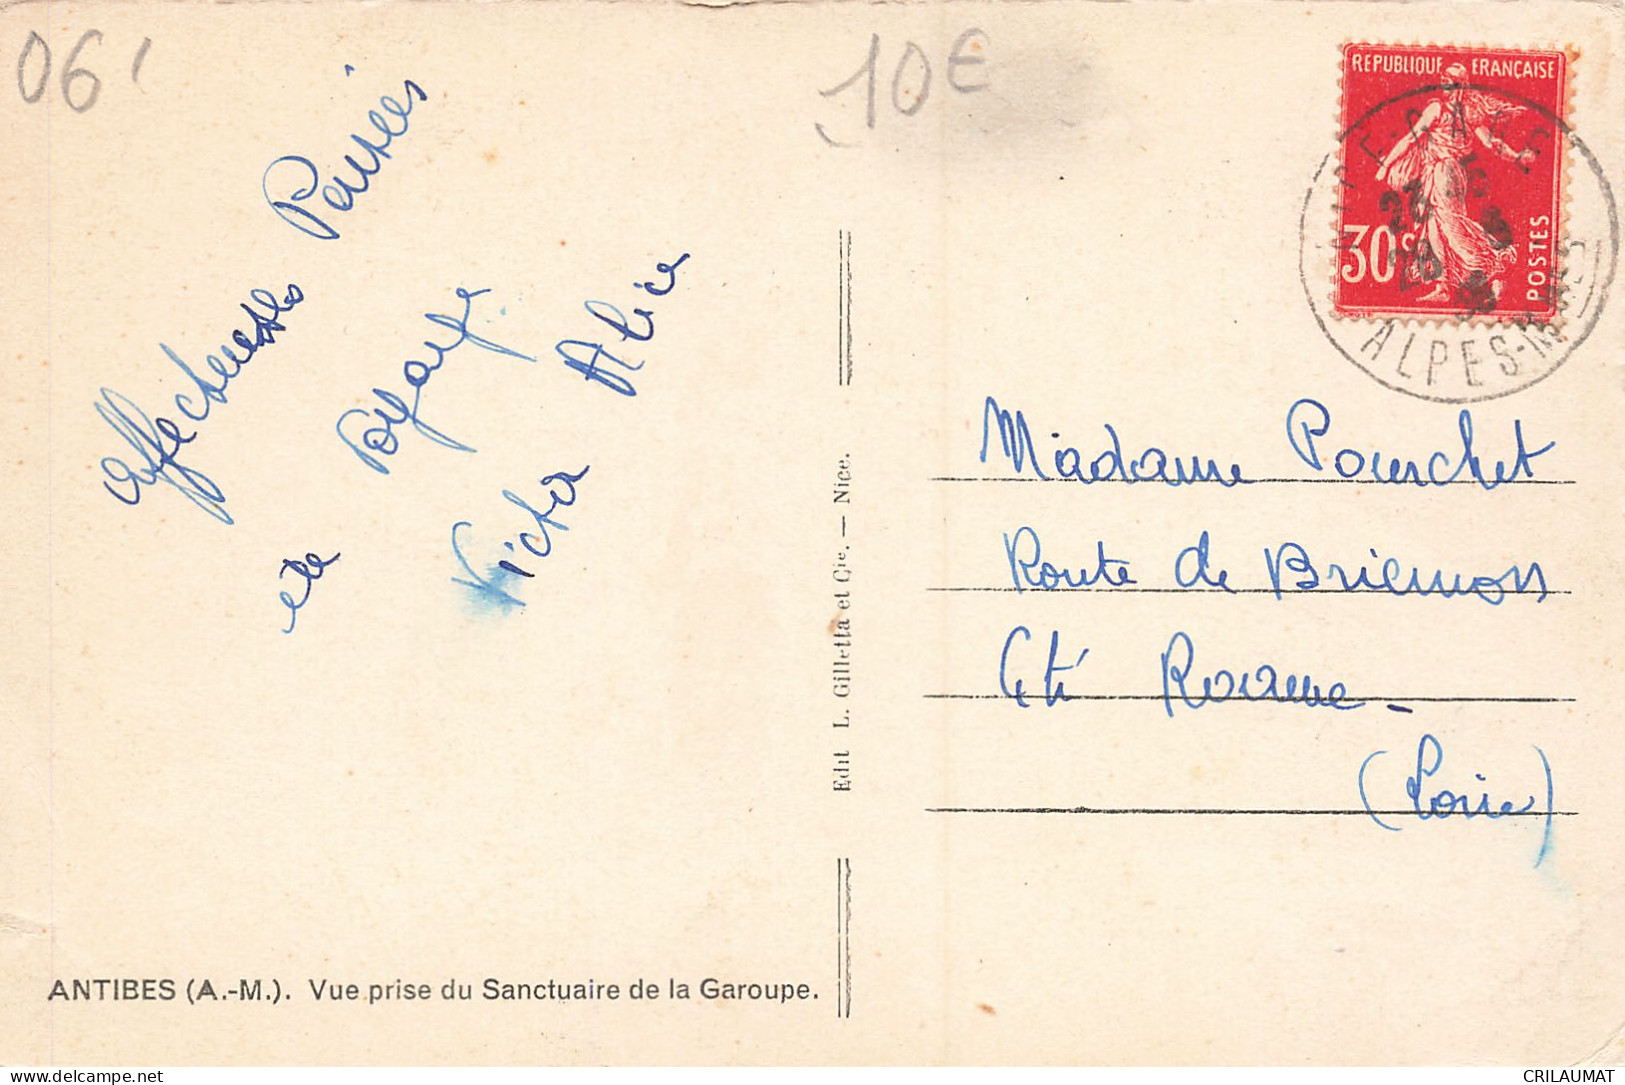 06
10€
REPUBLIQUE FRANÇAISE
30c
POSTES
GARE
ALPES-M
Affectueuses Pensées
de
Victor Alice
Madame Pourchet
Route de Briennon
Cté Roanne -
(Loire)
Edit L. Gilletta et Cie. — Nice.
ANTIBES (A.-M.). Vue prise du Sanctuaire de la Garoupe.
delcampe.net
CRILAUMAT